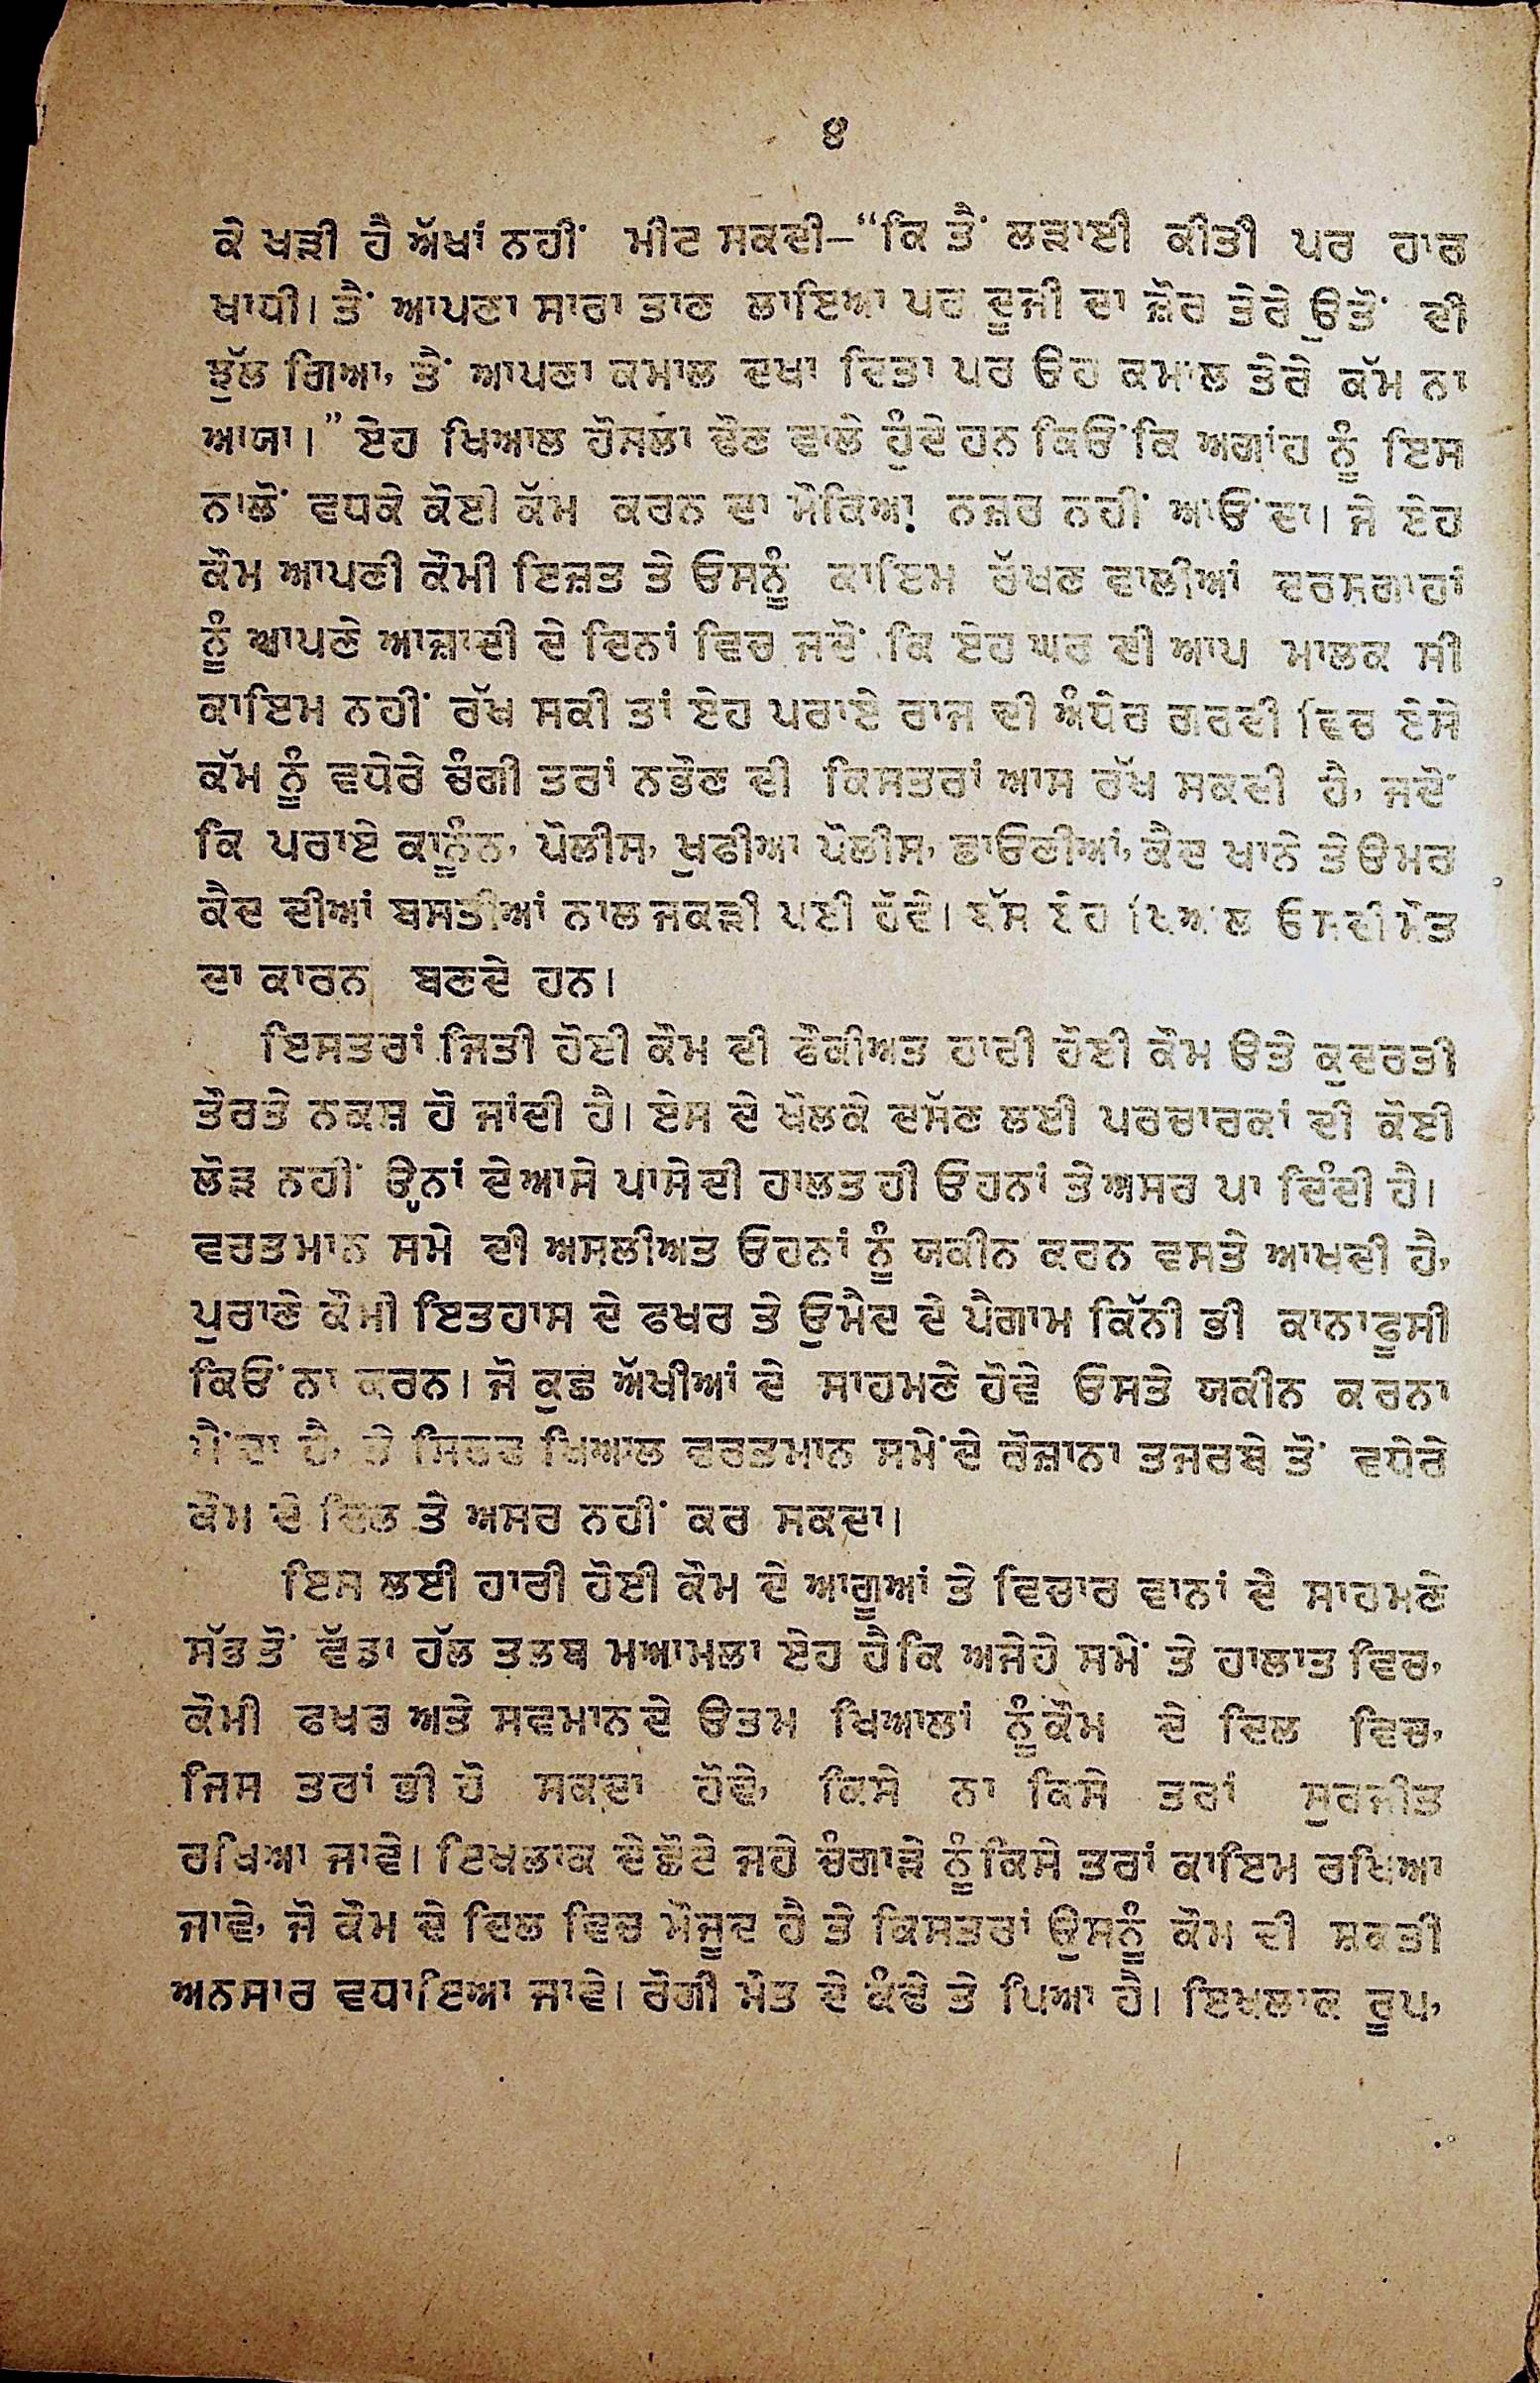 ੪
ਕੇ ਖੜੀ ਹੈ ਅੱਖਾਂ ਨਹੀਂ ਮੀਟ ਸਕਦੀ—“ਕਿ ਤੈਂ ਲੜਾਈ ਕੀਤੀ ਪਰ ਹਾਰ
ਖਾਧੀ। ਤੈਂ ਆਪਣਾ ਸਾਰਾ ਤਾਣ ਲਾਇਆ ਪਰ ਦੂਜੀ ਦਾ ਜ਼ੋਰ ਤੇਰੇ ਉਤੋਂ ਦੀ
ਝੁੱਲ ਗਿਆ, ਤੈਂ ਆਪਣਾ ਕਮਾਲ ਦਖਾ ਦਿਤਾ ਪਰ ਓਹ ਕਮਾਲ ਤੇਰੇ ਕੱਮ ਨਾ
ਆਯਾ।” ਏਹ ਖਿਆਲ ਹੌਸਲਾ ਢੌਣ ਵਾਲੇ ਹੁੰਦੇ ਹਨ ਕਿਓਂ ਕਿ ਅਗਾਂਹ ਨੂੰ ਇਸ
ਨਾਲੋਂ ਵਧਕੇ ਕੋਈ ਕੱਮ ਕਰਨ ਦਾ ਮੌਕਿਆ ਨਜ਼ਰ ਨਹੀਂ ਆਓਂਦਾ। ਜੇ ਏਹ
ਕੌਮ ਆਪਣੀ ਕੌਮੀ ਇਜ਼ਤ ਤੇ ਓਸਨੂੰ ਕਾਇਮ ਰੱਖਣ ਵਾਲੀਆਂ ਦਰਸਗਾਹਾਂ
ਨੂੰ ਆਪਣੇ ਆਜ਼ਾਦੀ ਦੇ ਦਿਨਾਂ ਵਿਚ ਜਦੋਂ ਕਿ ਏਹ ਘਰ ਦੀ ਆਪ ਮਾਲਕ ਸੀ
ਕਾਇਮ ਨਹੀਂ ਰੱਖ ਸਕੀ ਤਾਂ ਏਹ ਪਰਾਏ ਰਾਜ ਦੀ ਅੰਧੇਰ ਗਰਦੀ ਵਿਚ ਏਸੇ
ਕੱਮ ਨੂੰ ਵਧੇਰੇ ਚੰਗੀ ਤਰਾਂ ਨਭੌਣ ਦੀ ਕਿਸਤਰਾਂ ਆਸ ਰੱਖ ਸਕਦੀ ਹੈ, ਜਦੋਂ
ਕਿ ਪਰਾਏ ਕਾਨੂੰਨ, ਪੋਲੀਸ, ਖੁਫੀਆ ਪੋਲੀਸ, ਛਾਓਣੀਆਂ, ਕੈਦ ਖਾਨੇ ਤੇ ਓਮਰ
ਕੈਦ ਦੀਆਂ ਬਸਤੀਆਂ ਨਾਲ ਜਕੜੀ ਪਈ ਹੋਵੇ। ਬੱਸ ਏਹ ਖਿਆਲ ਓਸਦੀ ਮੌਤ
ਦਾ ਕਾਰਨ ਬਣਦੇ ਹਨ।
ਇਸਤਰਾਂ ਜਿਤੀ ਹੋਈ ਕੌਮ ਦੀ ਫੌਕੀਅਤ ਹਾਰੀ ਹੋਈ ਕੌਮ ਓਤੇ ਕੁਦਰਤੀ
ਤੌਰਤੇ ਨਕਸ਼ ਹੋ ਜਾਂਦੀ ਹੈ। ਏਸ ਦੇ ਖੋਲਕੇ ਦਸੱਣ ਲਈ ਪਰਚਾਰਕਾਂ ਦੀ ਕੋਈ
ਲੋੜ ਨਹੀਂ ਉਨ੍ਹਾਂ ਦੇ ਆਸੇ ਪਾਸੇ ਦੀ ਹਾਲਤ ਹੀ ਓਹਨਾਂ ਤੇ ਅਸਰ ਪਾ ਦਿੰਦੀ ਹੈ।
ਵਰਤਮਾਨ ਸਮੇ ਦੀ ਅਸਲੀਅਤ ਓਹਨਾਂ ਨੂੰ ਯਕੀਨ ਕਰਨ ਵਸਤੇ ਆਖਦੀ ਹੈ,
ਪੁਰਾਣੇ ਕੌਮੀ ਇਤਹਾਸ ਦੇ ਫਖਰ ਤੇ ਓੁਮੈਦ ਦੇ ਪੈਗਾਮ ਕਿੱਨੀ ਭੀ ਕਾਨਾਫੂਸੀ
ਕਿਓਂ ਨਾ ਕਰਨ। ਜੋ ਕੁਛ ਅੱਖੀਆਂ ਦੇ ਸਾਹਮਣੇ ਹੋਵੇ ਓਸਤੇ ਯਕੀਨ ਕਰਨਾ
ਪੈਂਦਾ ਹੈ, ਤੇ ਸਿਰਫ ਖਿਆਲ ਵਰਤਮਾਨ ਸਮੇਂ ਦੇ ਰੋਜ਼ਾਨਾ ਤਜਰਬੇ ਤੋਂ ਵਧੇਰੇ
ਕੌਮ ਦੇ ਦਿਲ ਤੇ ਅਸਰ ਨਹੀਂ ਕਰ ਸਕਦਾ।
ਇਸ ਲਈ ਹਾਰੀ ਹੋਈ ਕੌਮ ਦੇ ਆਗੂਆਂ ਤੇ ਵਿਚਾਰ ਵਾਨਾਂ ਦੇ ਸਾਹਮਣੇ
ਸੱਭ ਤੋਂ ਵੱਡਾ ਹੱਲ ਤਲਬ ਮਆਮਲਾ ਏਹ ਹੈ ਕਿ ਅਜੇਹੇ ਸਮੇਂ ਤੇ ਹਾਲਾਤ ਵਿਚ,
ਕੌਮੀ ਫਖਰ ਅਤੇ ਸਵਮਾਨ ਦੇ ਓਤਮ ਖਿਆਲਾਂ ਨੂੰ ਕੌਮ ਦੇ ਦਿਲ ਵਿਚ,
ਜਿਸ ਤਰਾਂ ਭੀ ਹੋ ਸਕਦਾ ਹੋਵੇ, ਕਿਸੇ ਨਾ ਕਿਸੇ ਤਰਾਂ ਸੁਰਜੀਤ
ਰਖਿਆ ਜਾਵੇ। ਇਖਲਾਕ ਦੇ ਛੋਟੇ ਜਹੇ ਚੰਗਾੜੇ ਨੂੰ ਕਿਸੇ ਤਰਾਂ ਕਾਇਮ ਰਖਿਆ
ਜਾਵੇ, ਜੋ ਕੌਮ ਦੇ ਦਿਲ ਵਿਚ ਮੌਜੂਦ ਹੈ ਤੇ ਕਿਸਤਰਾਂ ਉਸਨੂੰ ਕੌਮ ਦੀ ਸ਼ਕਤੀ
ਅਨਸਾਰ ਵਧਾਇਆ ਜਾਵੇ। ਰੋਗੀ ਮੌਤ ਦੇ ਕੰਢੇ ਤੇ ਪਿਆ ਹੈ। ਇਖਲਾਕ ਰੂਪ,